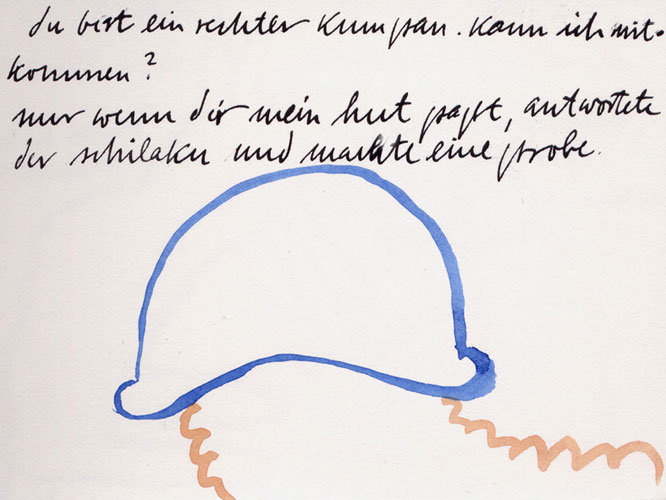 du bist ein rechter kumpan. kann ich mit-
kommen?
nur wenn dir mein hut paßt, antwortete
der schilaku und machte eine probe.